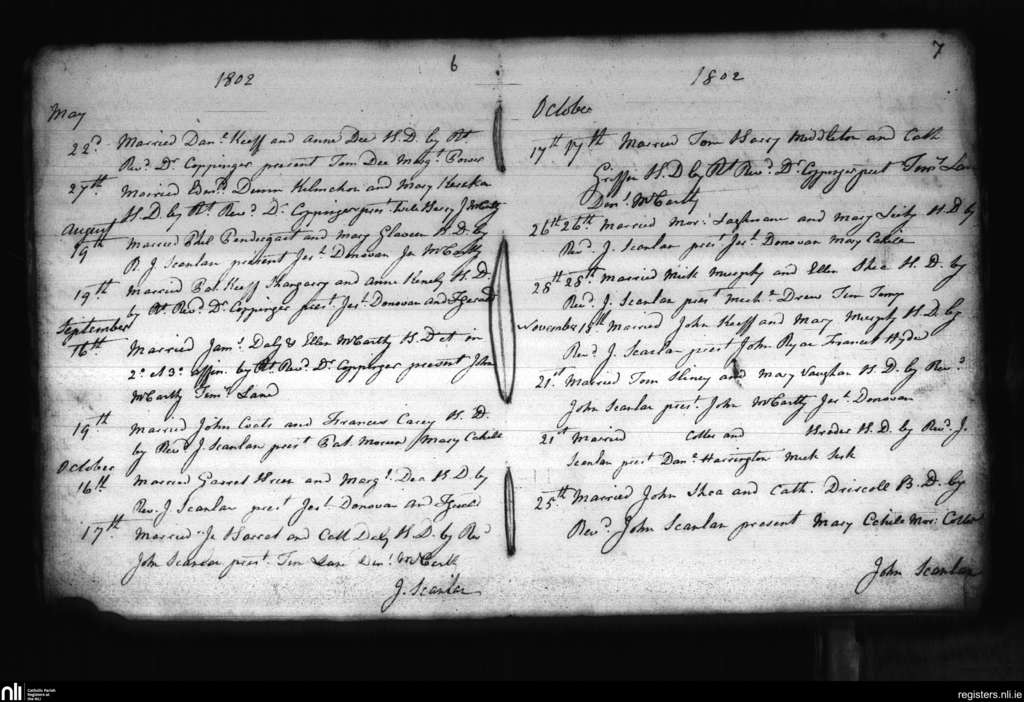 6
1802
May
22d. Married Danl. Keeff and Anne Dee H.D. by Rt.
Revd. Dr. Coppinger present Tom Dee Margt. Power
27th. Married Edmd. Dunn and Mary
H.D by Rt. Revd. Dr. Coppinger prest.
August
19th Married Phil Pendergast and Mary H.D. by
R. J Scanlan present Jas. Donovan Jn McCarthy
19th. Married Pat. Keeff and Anne H.D.
by Rt. Revd. Dr. Coppinger prest. Jas. Donovan and
September
16th. Married Jams. Daly & Ellen McCarthy H.D et in
2o. et 3o. affin. by Rt. Revd. Dr. Coppinger present John
McCarthy Timy. Lane
19th. Married John Coats and Frances Carey H.D.
by Revd. J Scanlan prest. Pat. Mary Cahile
October
16th Married Garret and Margt. Dea H.D. by
Rev. J Scanlan prest. Jas. Donovan and
17th. Married Jn Barrot and Cath Daly H.D. by Revd
John Scanlan prest. Tim Lane Denl. McCarth
J. Scanlan
7
1802
October
17th 17th Married Tom Barry Middleton and Cath
Griffin H.D by Rt Revd. Dr. Coppinger pset Timy. Lane
Denl. McCarthy
26th 26th. Married Mor: and Mary H.D by
Revd. J. Scanlan prest. Jas. Donovan Mary Cahile
28th 28th. Married Mick Murphy and Ellen Shea H.D. by
Revd. J. Scanlan prest. Drew Tim
November 18th Married John Keeff and Mary Murphy H.D. by
Revd. J. Scanlan prest John Ryan Francis Hyde
21st Married Tom Sliney and Mary Vaughan H.D. by Revd.
John Scanlan prest. John McCarthy Jas. Donovan
21st Married Cotter and H.D. by Revd. J.
Scanlan prest Danl. Harrington Mick
25th Married John Shea and Cath. Driscoll B.D. by
Revd. John Scanlan present Mary Cahile Mor: Cotter
John Scanlan
nli
Catholic Parish
Registers at
the NLI
registers.nli.ie